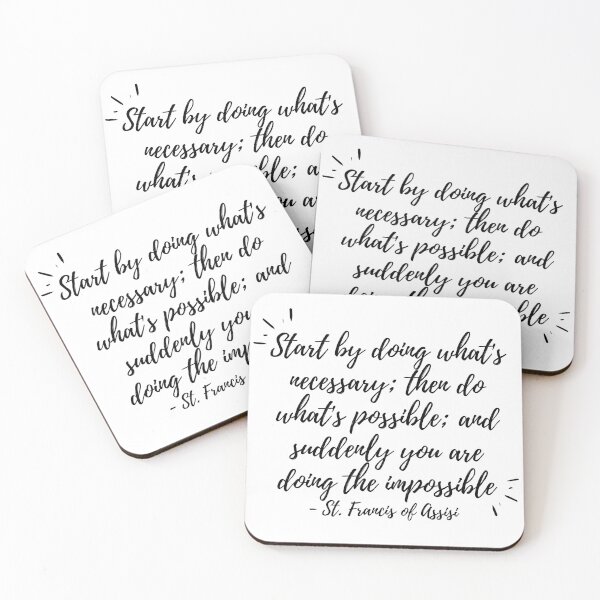 Start by doing what's
necessary; then do
what's possible; a
you a
is
Start by doing what's
necessary; then do
what's possible; and
suddenly you are
doing the impossible
Start by doing what's
necessary; then do
what's possible; and
suddenly you
doing the impo
- St. Francis
Start by doing what's
necessary; then do
what's possible; and
suddenly you are
doing the impossible
- St. Francis of Assisi